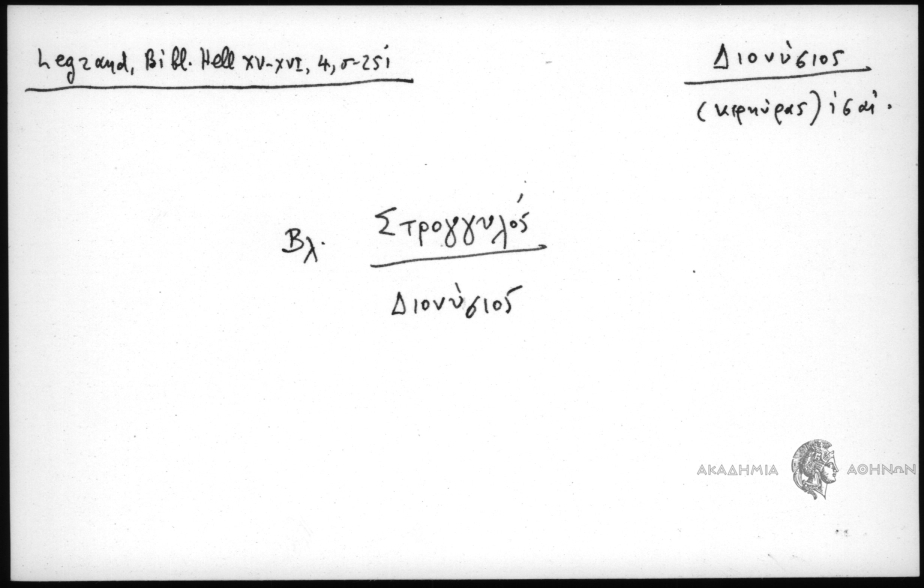 Legrand, Bibl. Hell XV-XVI, 4, σ-251
Διονύσιος
(Κερκύρας) ις αἰ.
Βλ. Στρογγυλός
Διονύσιος
ΑΚΑΔΗΜΙΑ ΑΘΗΝΩΝ